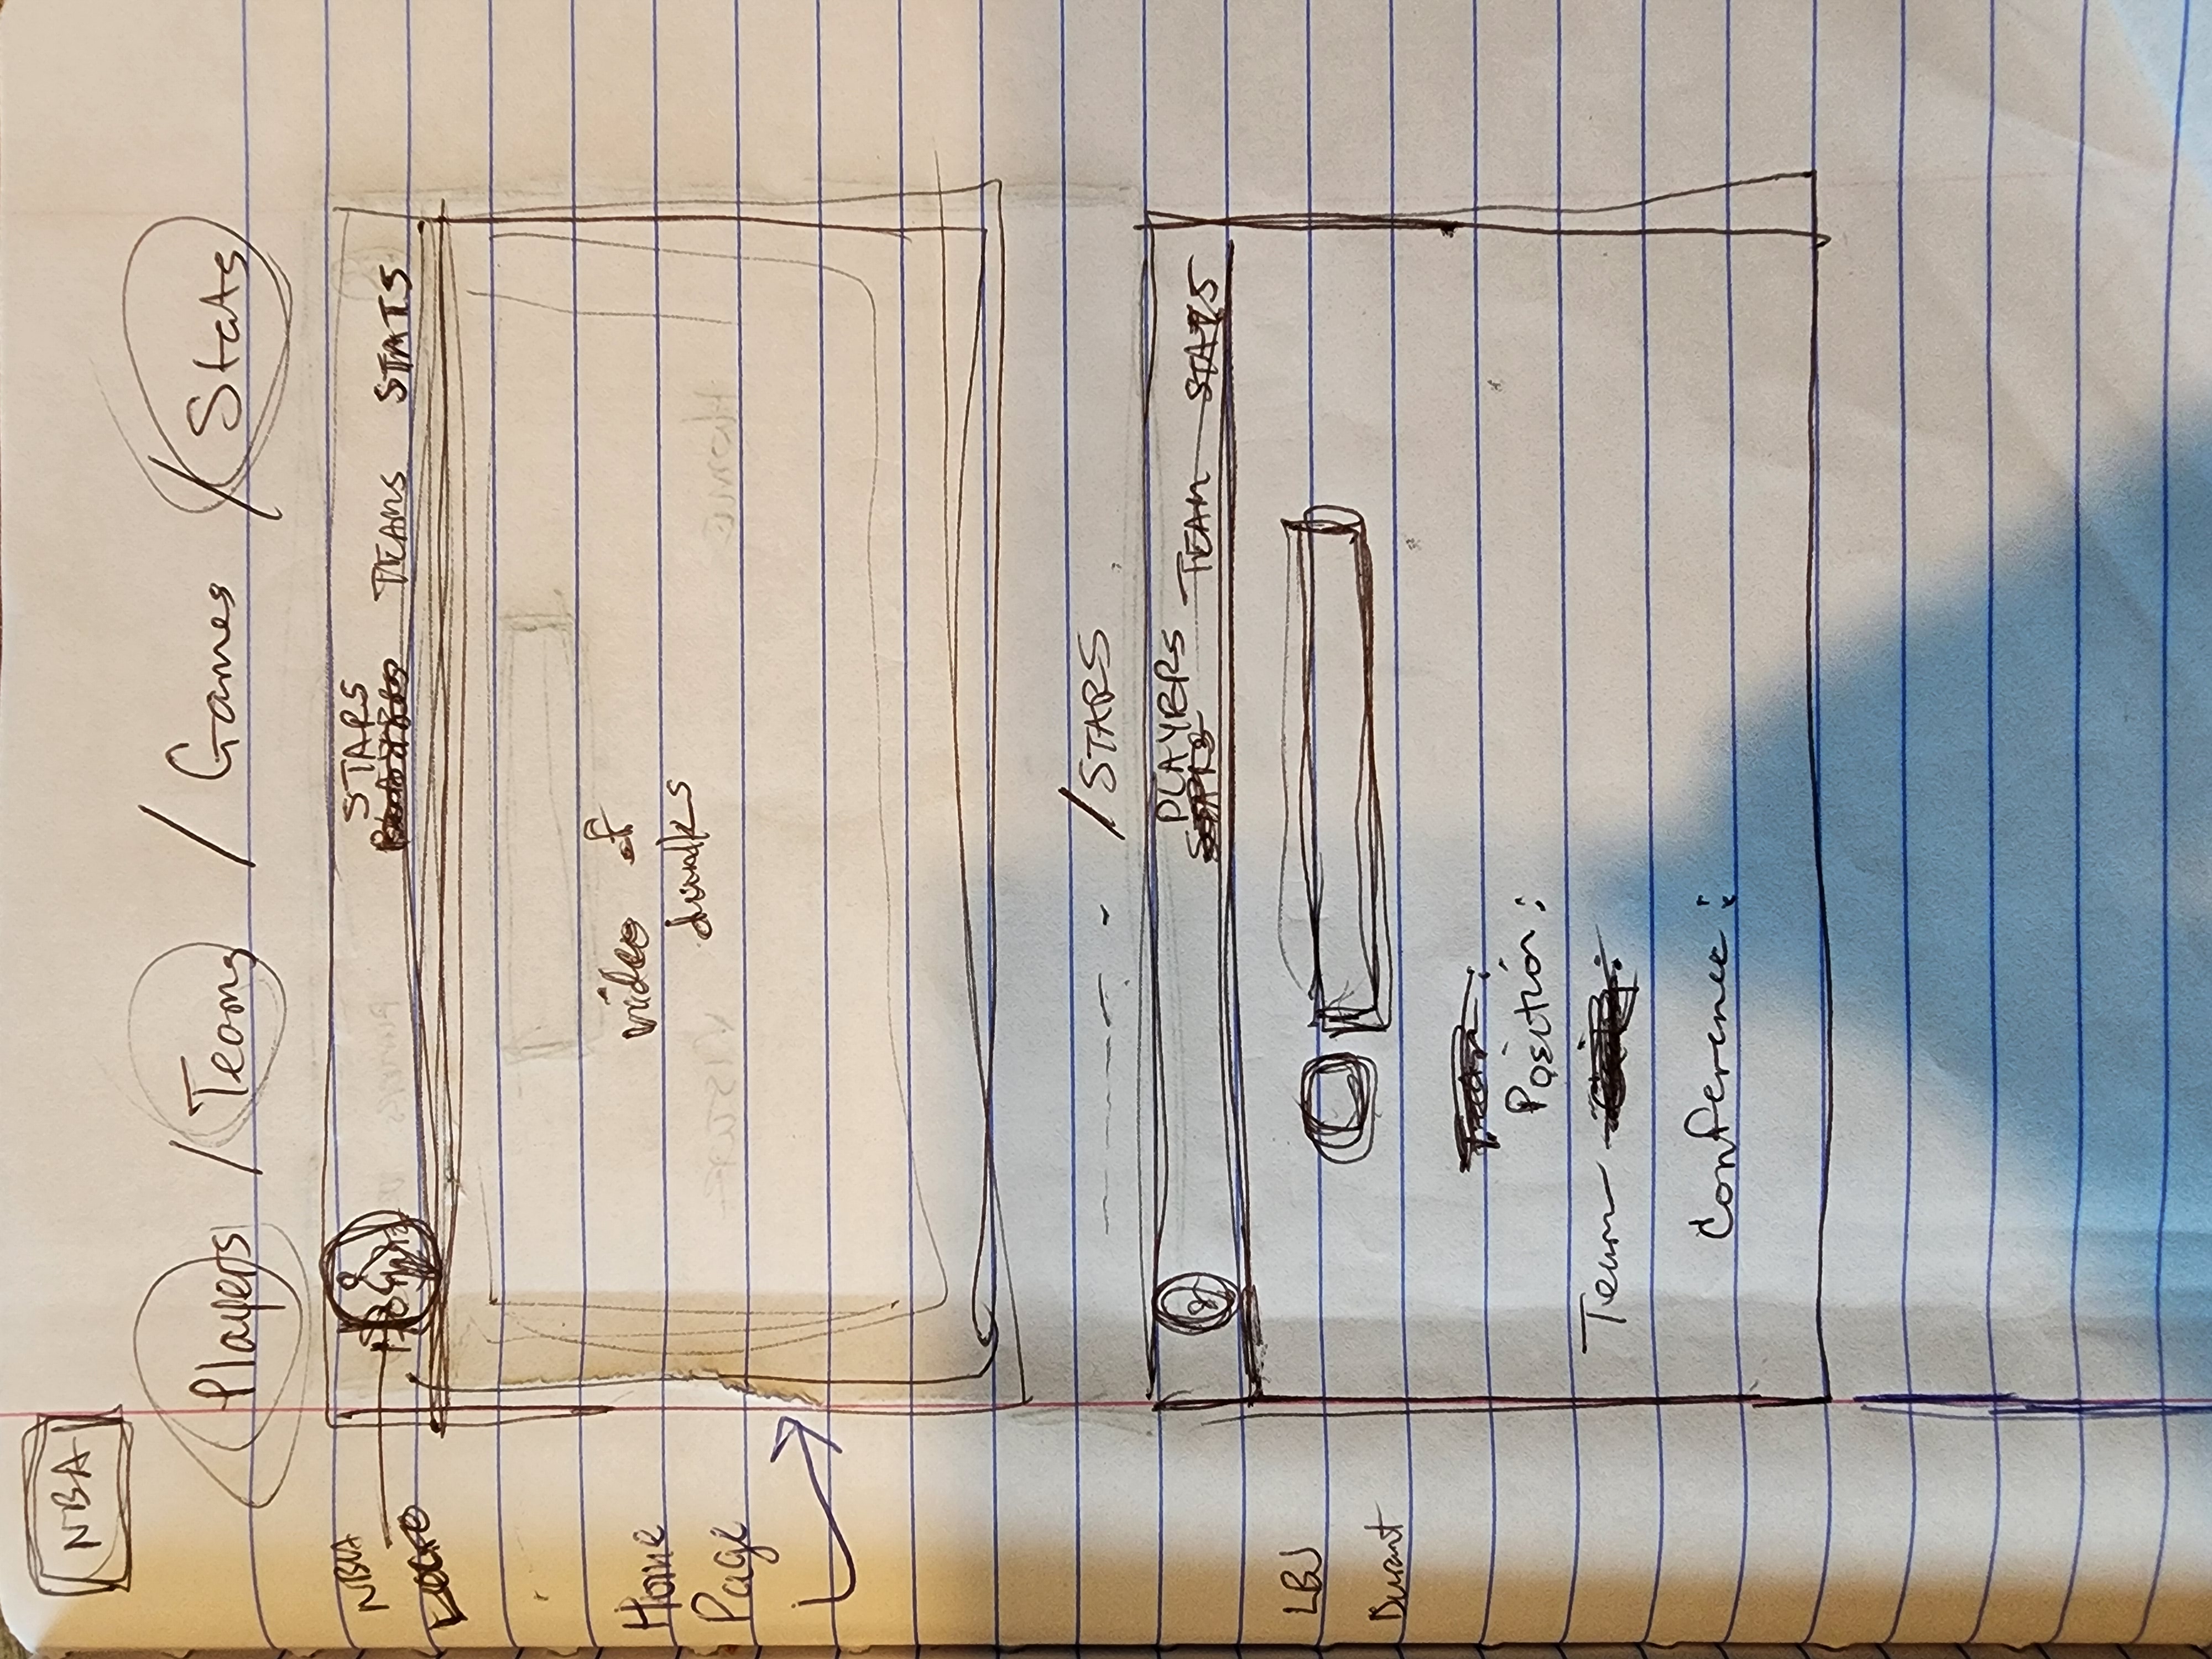 NBA
Players / Teams / Games / Stats
NBA
LOGO
STARS
TEAMS STATS
Home
Page
video of
dunks
/STARS
PLAYERS
STARS TEAM STATS
LBJ
Durant
Position:
Team
Conference: